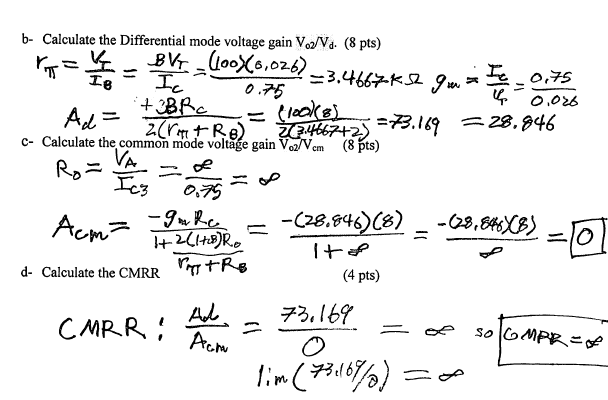 b- Calculate the Differential mode voltage gain Vo2/Vd. (8 pts)
rπ = VT/IB = BVT/Ic = (100)(0,026)/0.75 = 3.4667kΩ gm = Ic/VT = 0,75/0.026 = 28.846
Ad = +BRc/2(rπ + RB) = (100)(8)/2(3.4667+2) = 73.169
c- Calculate the common mode voltage gain Vo2/Vcm (8 pts)
Ro = VA/Ic3 = ∞/0.75 = ∞
Acm = -gmRc/1+ 2(1+B)Ro/rπ + RB = -(28,846)(8)/1+∞ = -(28,846)(8)/∞ = 0
d- Calculate the CMRR (4 pts)
CMRR : Ad/Acm = 73.169/0 = ∞ so CMRR = ∞
lim (73.169/0) = ∞